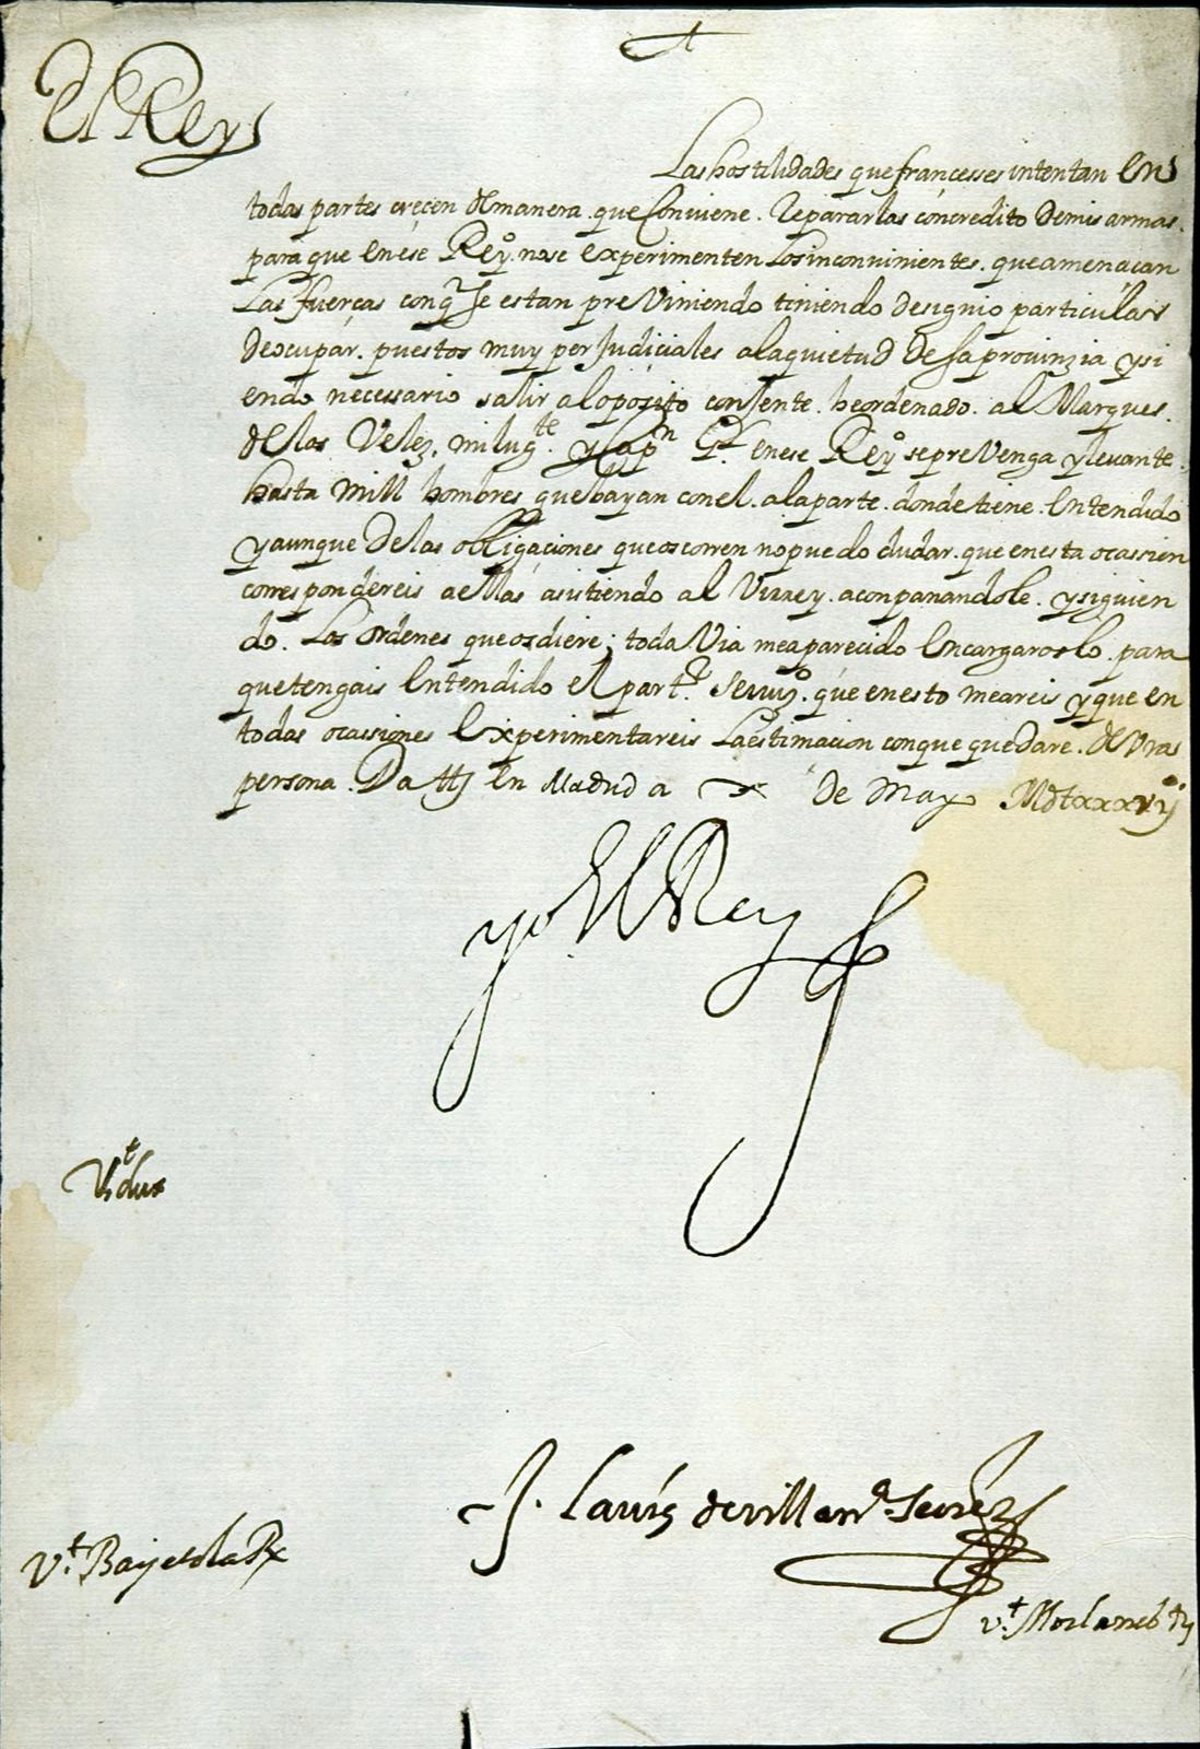 El Rey
Las hostilidades que françesses intentan en
todas partes creçen de manera que Conviene Repararlas con credito de mis armas
para que en ese Reyo. no se experimenten Los inconvinientes que amenaçan
Las fuerças con q se estan preViniendo tiniendo designio particular
de ocupar puestos muy perJudiciales ala quietud de sa provinzia y si
endo necessario salir al oposito con Jente he ordenado al Marques
de los Velez mi lugte. y Capn Gl. en ese Reyo se preVenga y levante
hasta mill hombres que bayan con el ala parte donde tiene entendido
y aunque de las obligaciones que os corren no puedo dudar que en esta ocassion
correspondereis a ellas asistiendo al Virrey aconpanandole y siguien
do Los Ordenes que os diere; toda Via me a parecido encargaroslo para
que tengais entendido el part.r servio. que en esto me areis y que en
todas ocassiones experimentareis La estimacion con que quedare de vras
persona. Datt en Madrid a x de Mayo MDCxxxvij
yo El Rey
Vt dux
J. Lauys de villanª. Secrs
Vt. Bayetola Rx
vt. Morlanes